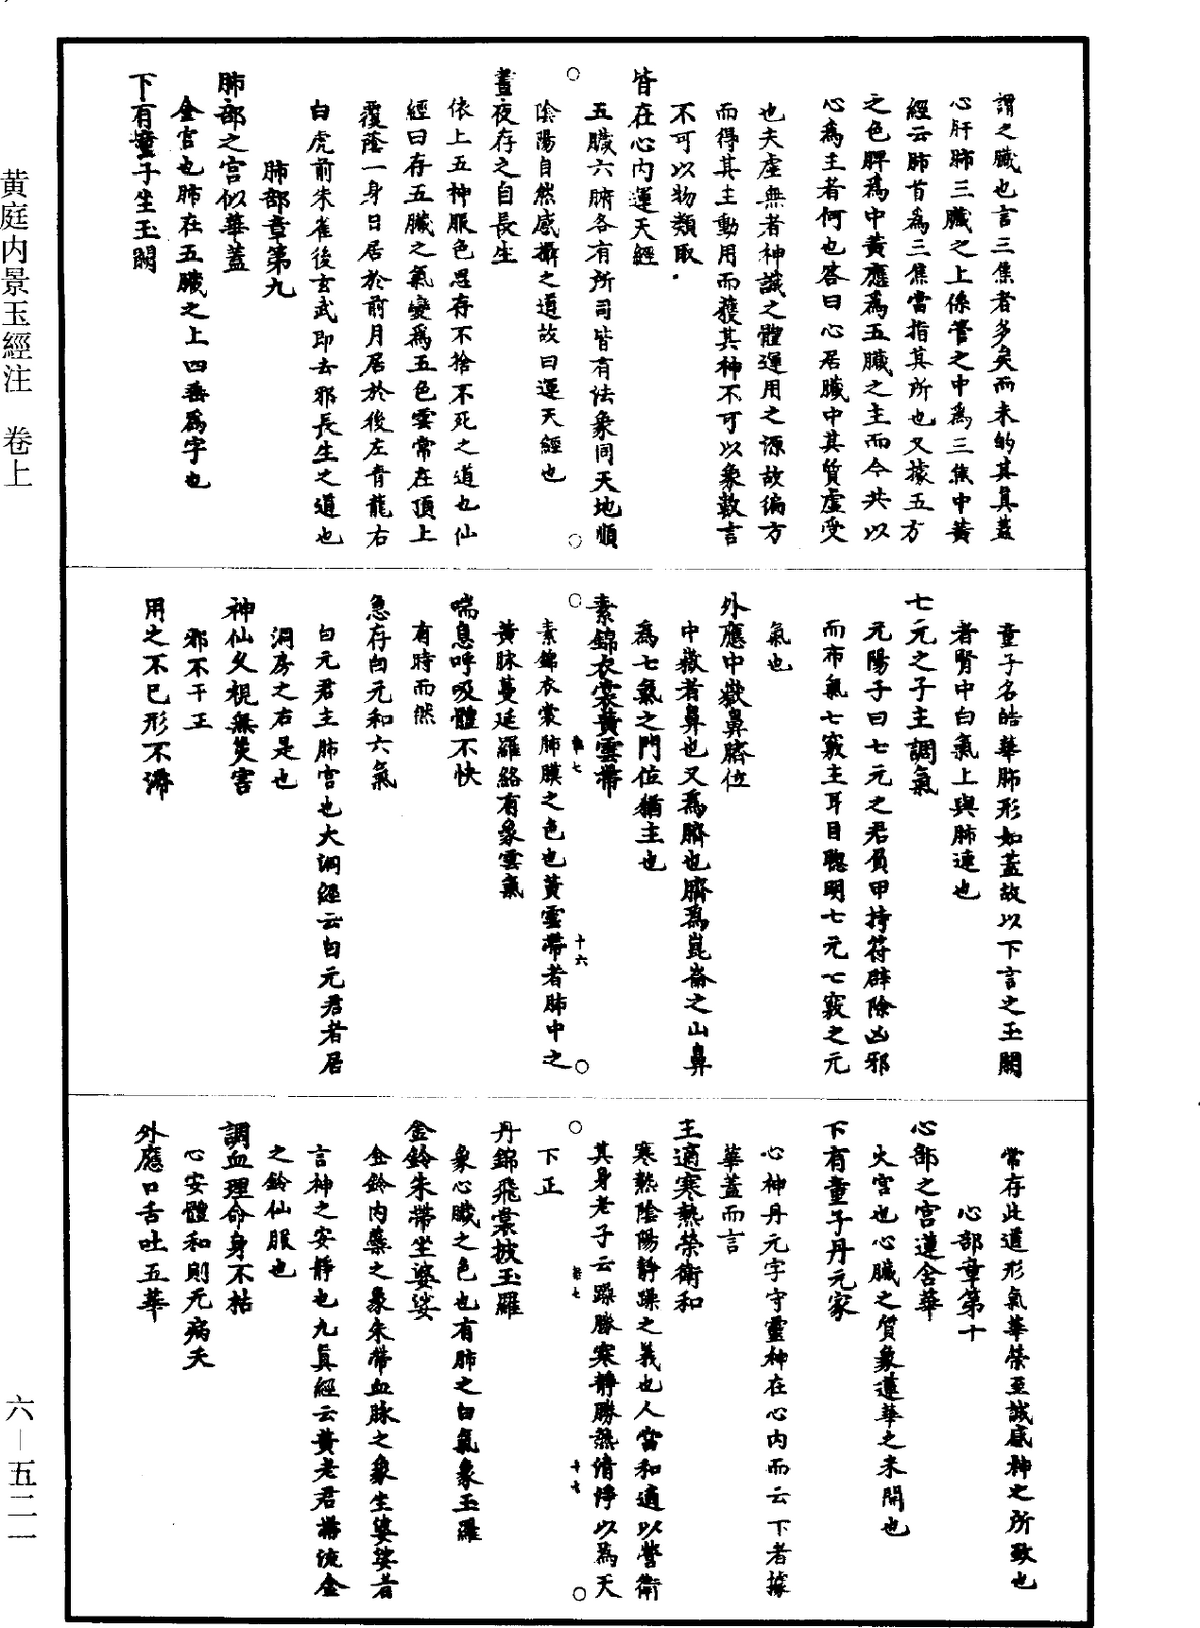 黃庭內景玉經注　卷上
謂之臟也言三焦者多矣而未的其真蓋
心肝肺三臟之上係管之中為三焦中黃
經云肺首為三焦當指其所也又據五方
之色脾為中黃應為五臟之主而今共以
心為主者何也答曰心居臟中其質虛受
也夫虛無者神識之體運用之源故偏方
而得其主動用而獲其神不可以象數言
不可以物類取
皆在心內運天經
五臟六腑各有所司皆有法象同天地順
陰陽自然感攝之道故曰運天經也
晝夜存之自長生
依上五神服色思存不捨不死之道也仙
經曰存五臟之氣變為五色雲常在頂上
覆蔭一身日居於前月居於後左青龍右
白虎前朱雀後玄武即去邪長生之道也
肺部章第九
肺部之宮似華蓋
金宮也肺在五臟之上四垂為宇也
下有童子坐玉闕
童子名皓華肺形如蓋故以下言之玉闕
者腎中白氣上與肺連也
七元之子主調氣
元陽子曰七元之君負甲持符辟除凶邪
而布氣七竅主耳目聰明七元七竅之元
氣也
外應中嶽鼻臍位
中嶽者鼻也又為臍也臍為崑崙之山鼻
為七氣之門位猶主也
素錦衣裳黃雲帶
素錦衣裳肺膜之色也黃雲帶者肺中之
黃脉蔓延羅絡有象雲氣
喘息呼吸體不快
有時而然
急存白元和六氣
白元君主肺宮也大洞經云白元君者居
洞房之右是也
神仙久視無災害
邪不干正
用之不已形不滯
常存此道形氣華榮至誠感神之所致也
心部章第十
心部之宮蓮含華
火宮也心臟之質象蓮華之未開也
下有童子丹元家
心神丹元字守靈神在心內而云下者據
華蓋而言
主適寒熱榮衛和
寒熱陰陽靜躁之義也人當和適以營衛
其身老子云躁勝寒靜勝熱清淨以為天
下正
丹錦飛裳披玉羅
象心臟之色也有肺之白氣象玉羅
金鈴朱帶坐婆娑
金鈴內藥之象朱帶血脉之象坐婆娑者
言神之安靜也九真經云黃老君帶流金
之鈴仙服也
調血理命身不枯
心安體和則无病夭
外應口舌吐五華
六—五二一